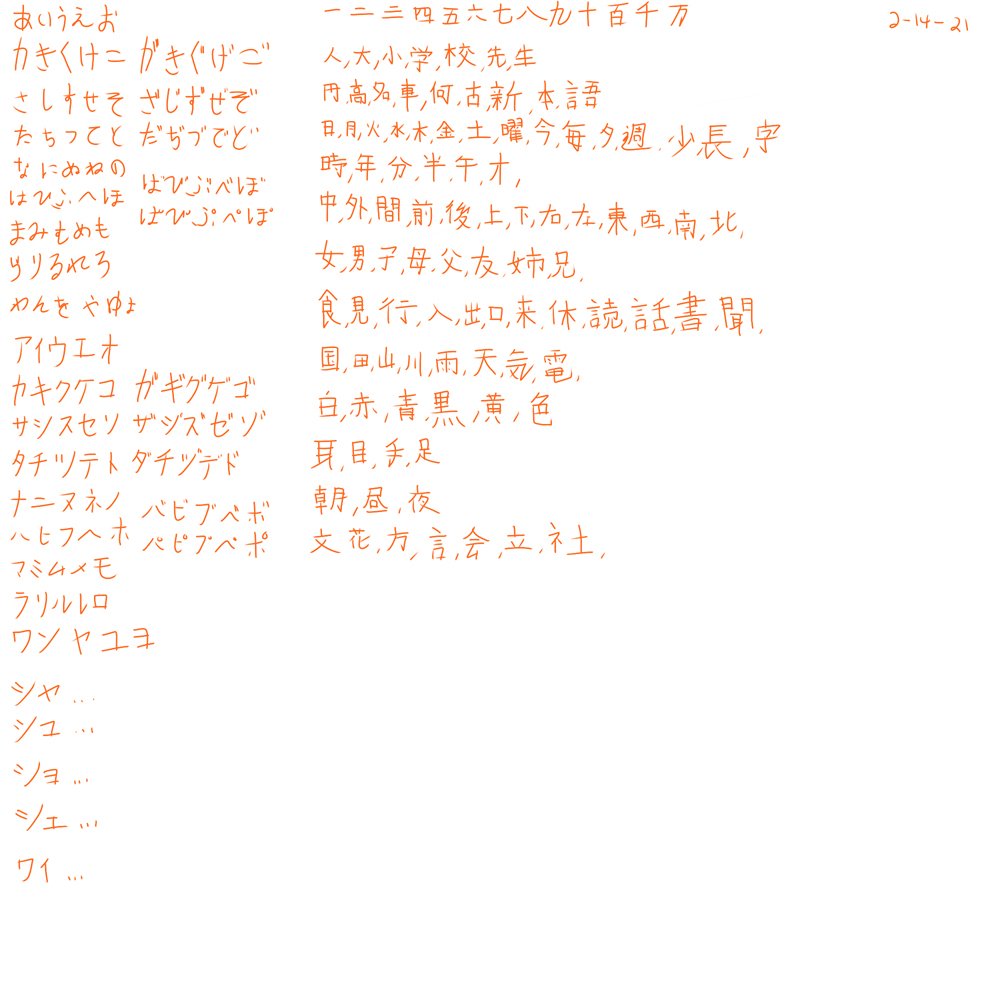 あいうえお
かきくけこ がぎぐげご
さしすせそ ざじずぜぞ
たちつてと だぢづでど
なにぬねの
はひふへほ ばびぶべぼ
ぱぴぷぺぽ
まみむめも
らりるれろ
わんを やゆよ
アイウエオ
カキクケコ ガギグゲゴ
サシスセソ ザジズゼゾ
タチツテト ダヂヅデド
ナニヌネノ
バビブベボ
ハヒフヘホ パピプペポ
マミムメモ
ラリルレロ
ワン ヤユヨ
シャ...
シュ...
ショ...
シェ...
ワイ...
一二三四五六七八九十百千万
人,大,小,学,校,先,生
円,高,名,車,何,古,新,本,語
日,月,火,水,木,金,土,曜,今,毎,夕,週,少,長,字
時,年,分,半,午,才,
中,外,間,前,後,上,下,右,左,東,西,南,北,
女,男,子,母,父,友,姉,兄,
食,見,行,入,出,口,来,休,読,話,書,聞,
国,田,山,川,雨,天,気,電,
白,赤,青,黒,黄,色
耳,目,手,足
朝,昼,夜
文,花,方,言,会,立,社,
2-14-21